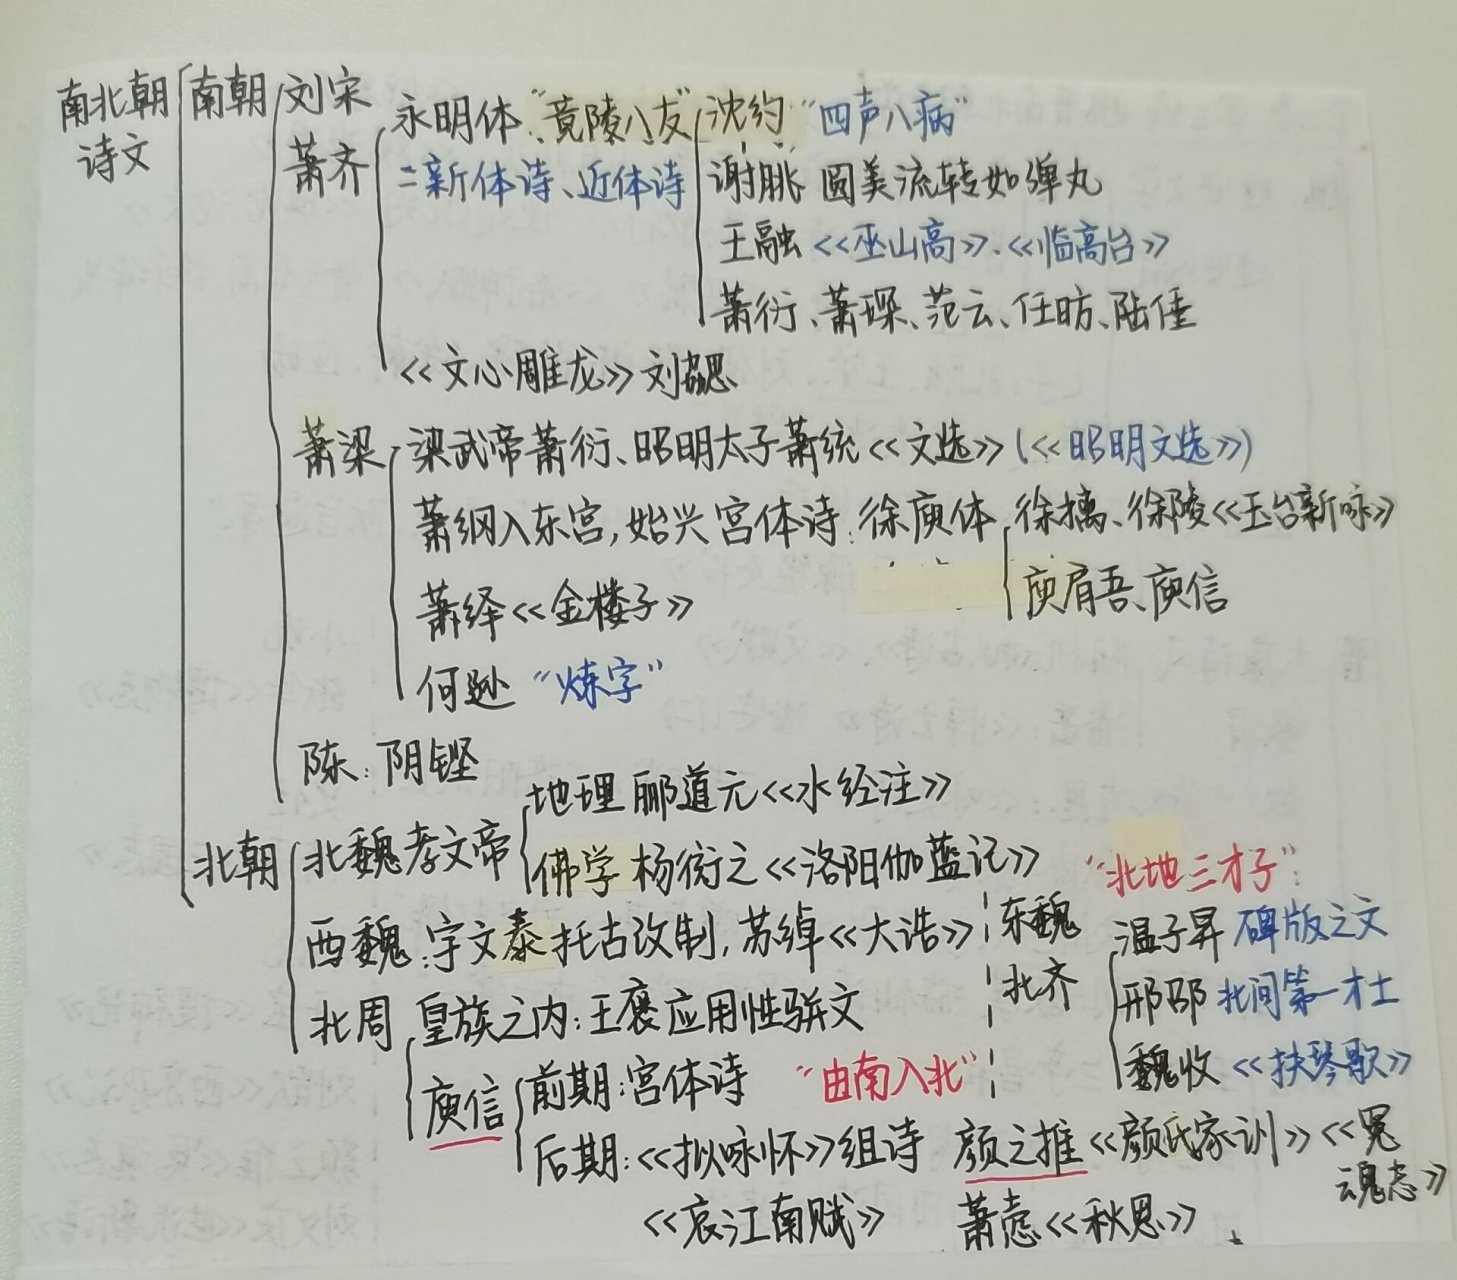 南北朝诗文
南朝
刘宋
萧齐
永明体:"竟陵八友"
=新体诗、近体诗
沈约 "四声八病"
谢朓 圆美流转如弹丸
王融<<巫山高>>.<<临高台>>
萧衍、萧琛、范云、任昉、陆倕
<<文心雕龙>>刘勰
萧梁
梁武帝萧衍、昭明太子萧统<<文选>>(<<昭明文选>>)
萧纲入东宫,始兴宫体诗:徐庾体
徐摛、徐陵<<玉台新咏>>
庾肩吾、庾信
萧绎<<金楼子>>
何逊 "炼字"
陈:阴铿
北朝
北魏孝文帝
地理 郦道元<<水经注>>
佛学 杨衒之<<洛阳伽蓝记>>
西魏:宇文泰托古改制,苏绰<<大诰>>
北周
皇族之内:王褒应用性骈文
庾信
前期:宫体诗 "由南入北"
后期:<<拟咏怀>>组诗
<<哀江南赋>>
东魏
北齐
"北地三才子":
温子昇 碑版之文
邢邵 北间第一才士
魏收 <<挟琴歌>>
颜之推<<颜氏家训>><<冤魂志>>
萧悫<<秋思>>